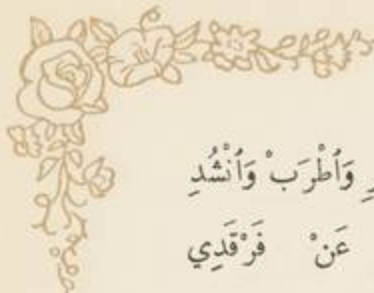 وَاُطْرَبْ وَاُنْشُدِ
عَنْ فَرْقَدِي